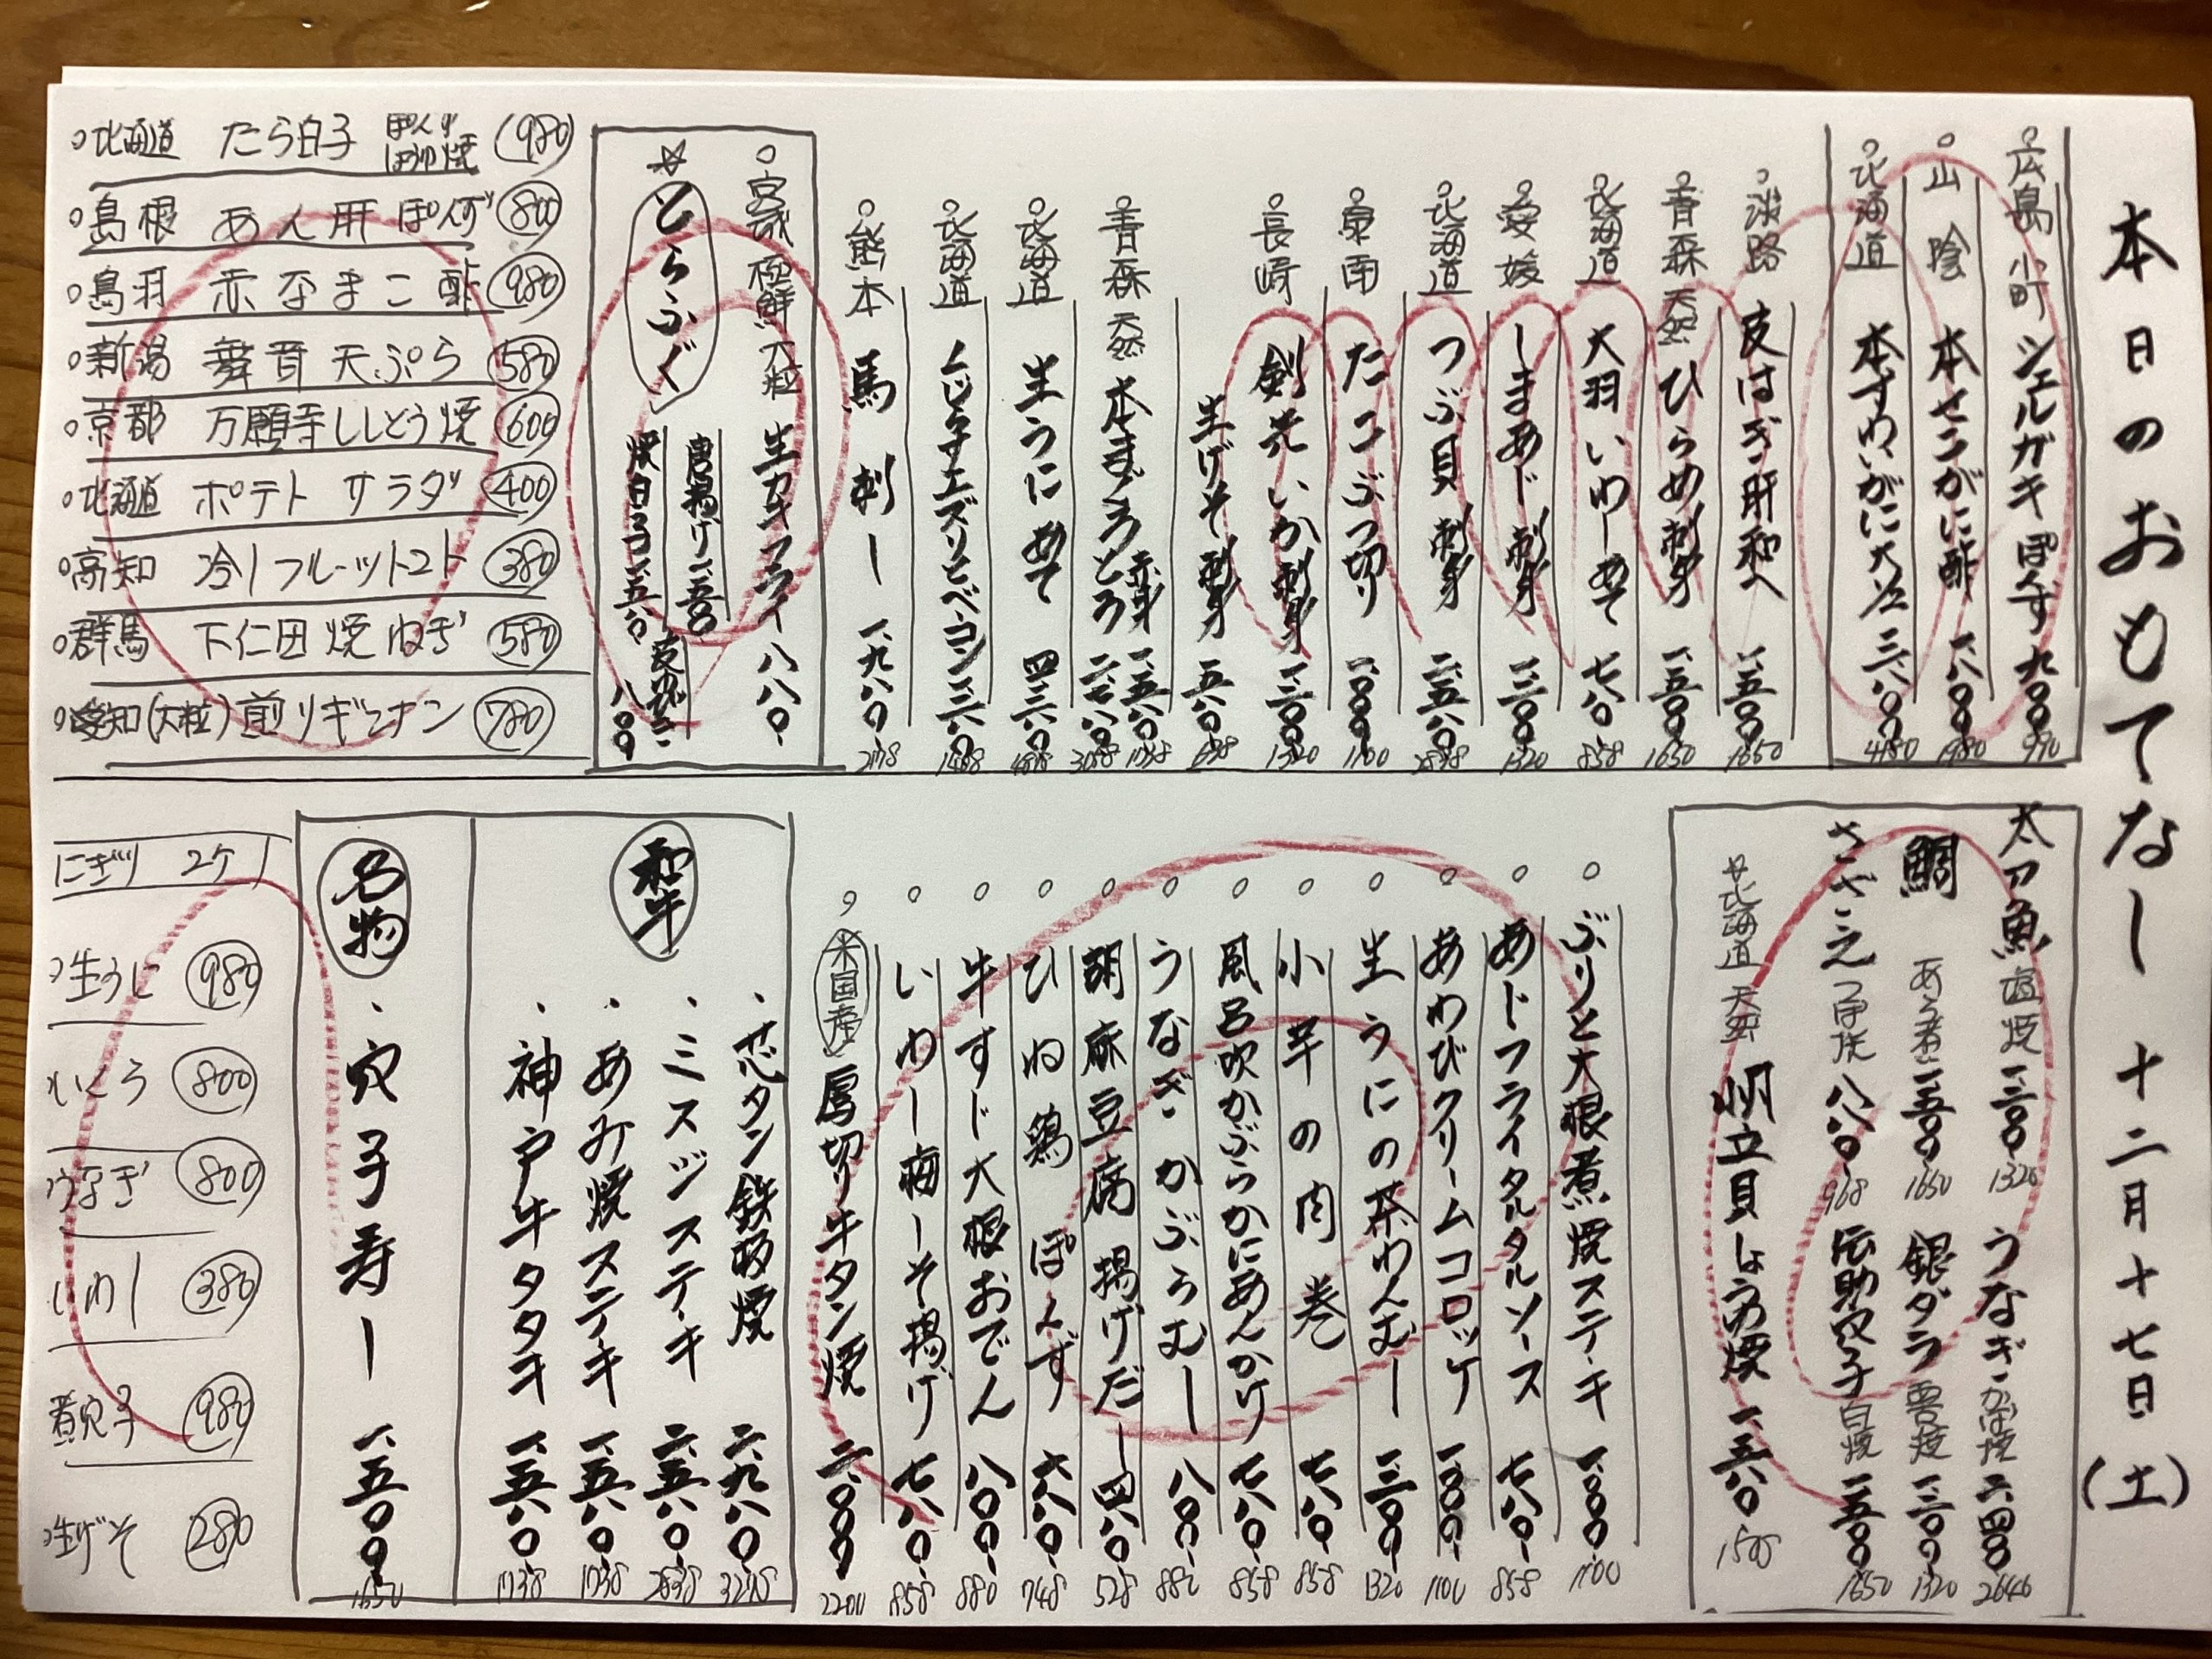 本日のおもてなし 十二月十七日(土)
広島 小町 シェルガキ ぽんず 九〇〇 990
山陰 本せこがに酢 一、八〇〇 1980
北海道 本ずわいがに 三、八〇〇 4180
淡路 皮はぎ肝和へ 一、五〇〇 1650
青森 天然 ひらめ刺身 一、五〇〇 1650
北海道 大羽いわしあて 七八〇 858
愛媛 しまあじ刺身 一、二〇〇 1320
北海道 つぶ貝刺身
泉南 たこぶつ切り 一、〇〇〇 1100
長崎 剣先いか刺身 一、二〇〇 1320
生げそ刺身 五八〇
青森 天然 本まぐろ
赤身 一、五八〇
とろ 二、七八〇
北海道 生うにあて
北海道 くじら
熊本 馬刺し 一、九八〇
宮城 極鮮 大粒 生カキフライ 八八〇
とらふぐ
唐揚げ 一、二五〇
焼白子 一、五八〇
八〇〇
北海道 たら白子 ぽんず 焼 980
島根 あん肝ぽんず 800
鳥羽 赤なまこ酢 980
新潟 舞茸天ぷら 580
京都 万願寺ししとう焼 600
北海道 ポテトサラダ 400
高知 冷しフルーツトマト 380
群馬 下仁田焼ねぎ 580
愛知(大粒)煎りギンナン 780
太刀魚 塩焼 一、二〇〇 1320
うなぎ かば焼 二、四〇〇 2640
鯛 あら煮 一、五〇〇 1650
銀ダラ 西京焼 一、二〇〇 1320
さざえ つぼ焼 八八〇 968
伝助穴子 白焼 一、五〇〇 1650
北海道 天然 帆立貝しょうゆ焼
ぶりと大根煮焼ステーキ 一、〇〇〇 1100
あじフライタルタルソース 七八〇 858
あわびクリームコロッケ 一、〇〇〇 1100
生うにの茶わんむし 一、二〇〇 1320
小芋の肉巻 七八〇 858
風呂吹かぶらかにあんかけ 七八〇 858
うなぎかぶらむし 八〇〇 880
胡麻豆腐揚げだし 四八〇 528
ひね鶏ぽんず 六八〇 748
牛すじ大根おでん 八〇〇 880
いわし梅しそ揚げ 七八〇 858
米国産 厚切り牛タン焼 二、〇〇〇 2200
和牛
芯タン鉄板焼 二、九八〇 3278
ミスジステーキ 二、五八〇 2838
あみ焼ステーキ 一、五八〇 1738
神戸牛タタキ 一、五八〇 1738
名物
穴子寿し 一、五〇〇 1650
にぎり 2ケ
生うに 980
いくら 800
うなぎ 800
いわし 380
煮穴子 980
生げそ 280